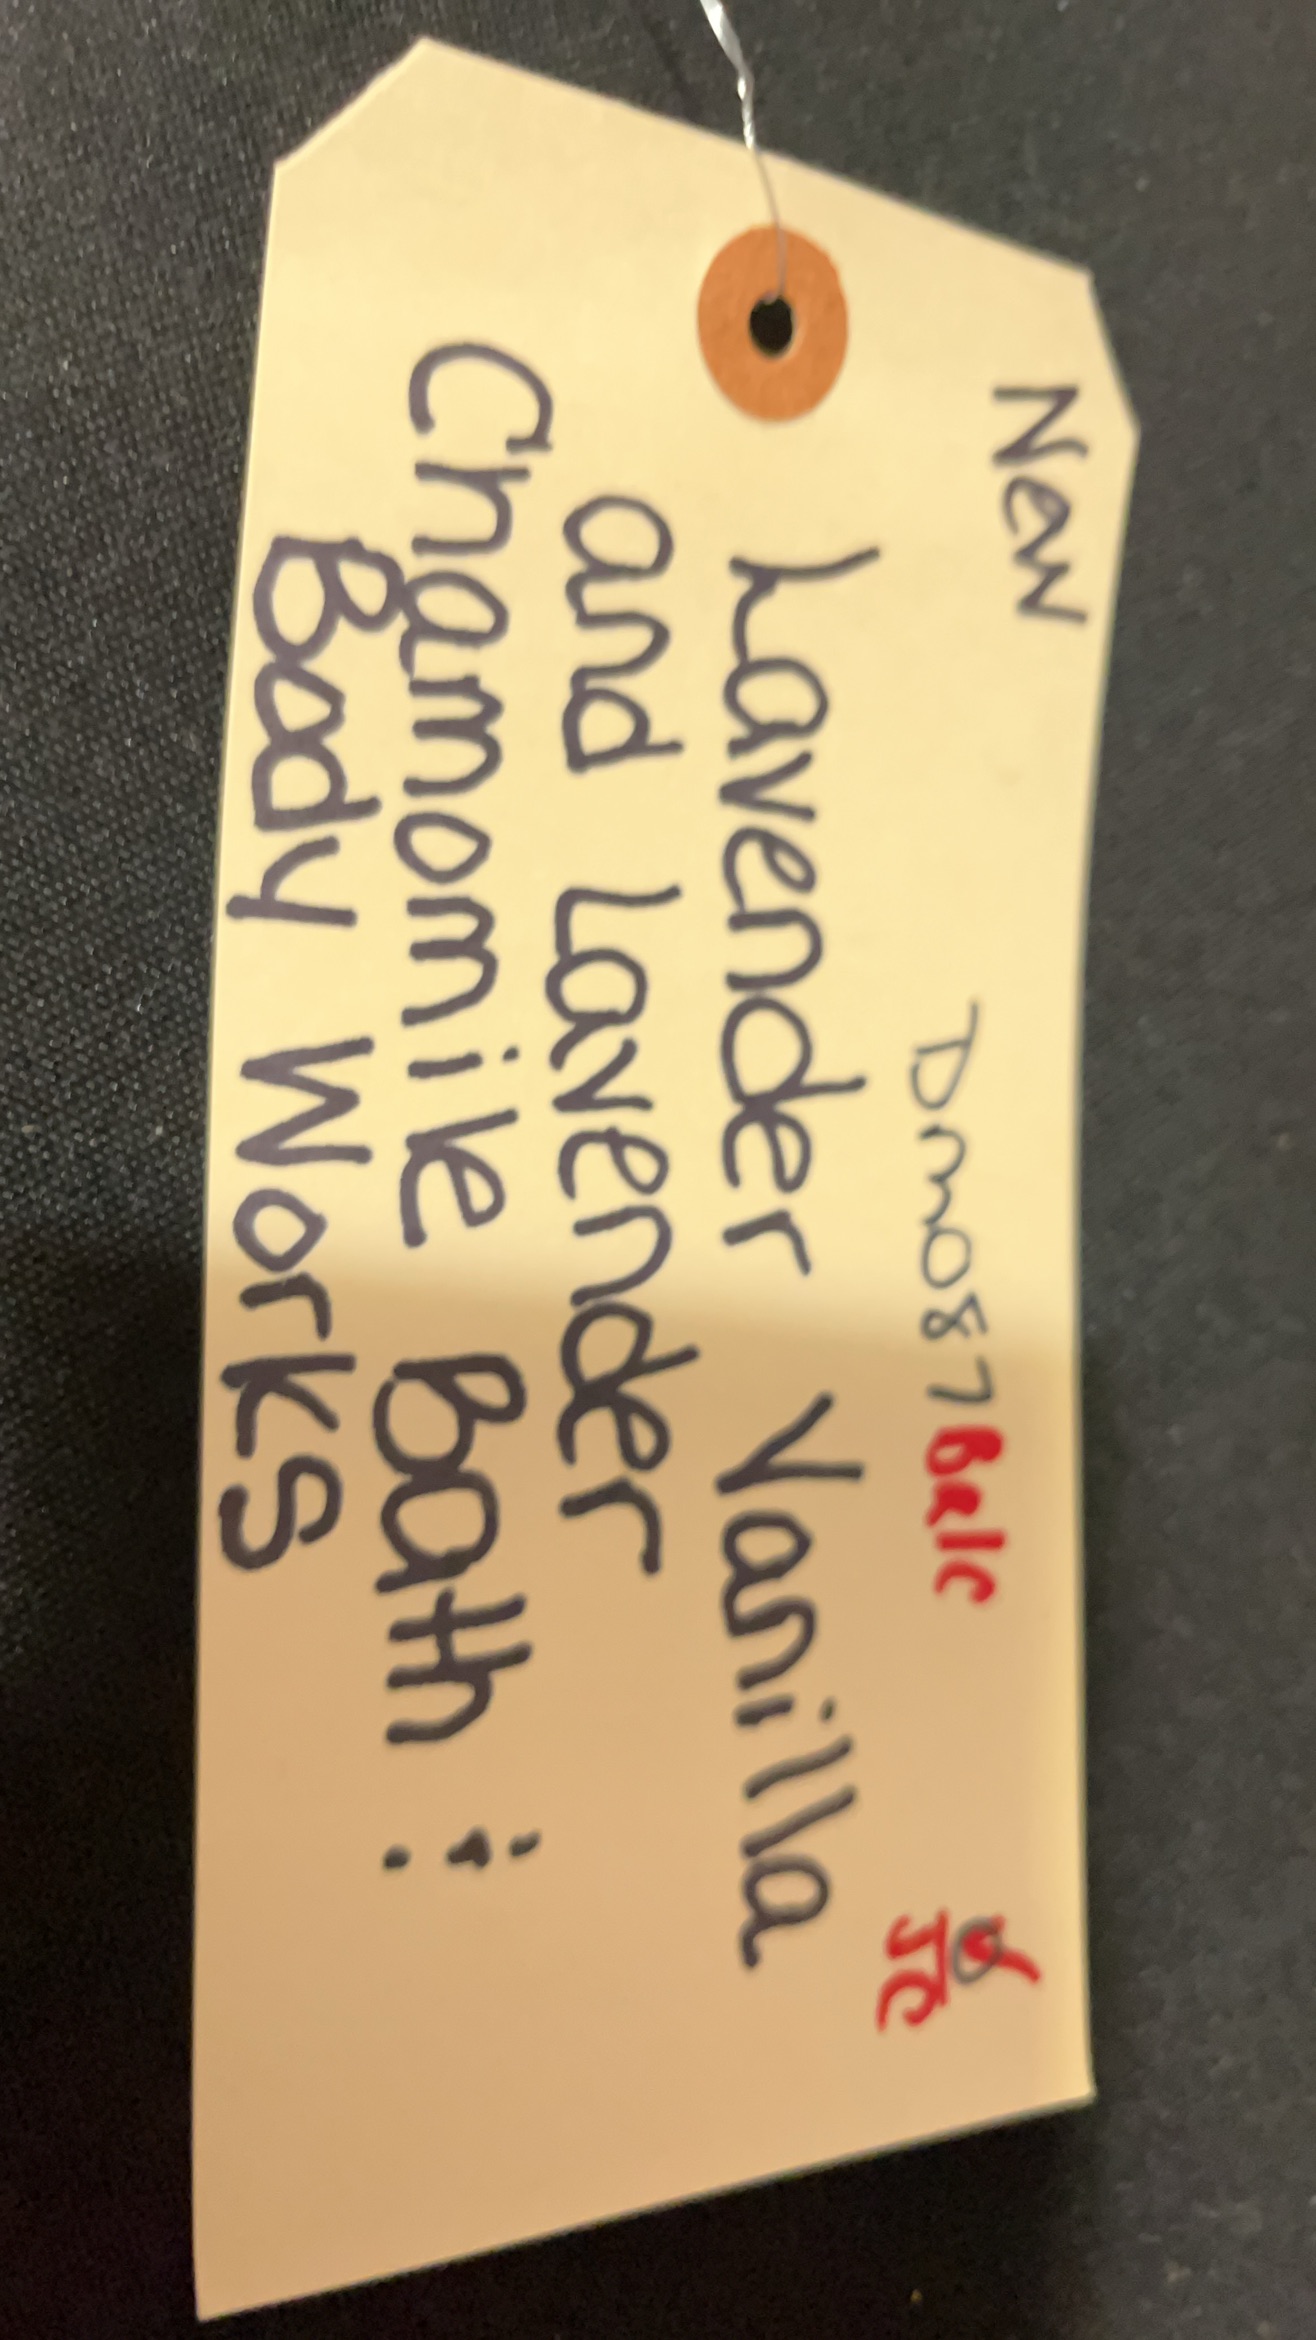 New
DM087 Balc
Lavender Vanilla
and Lavender
Chamomile Bath :
Body Works